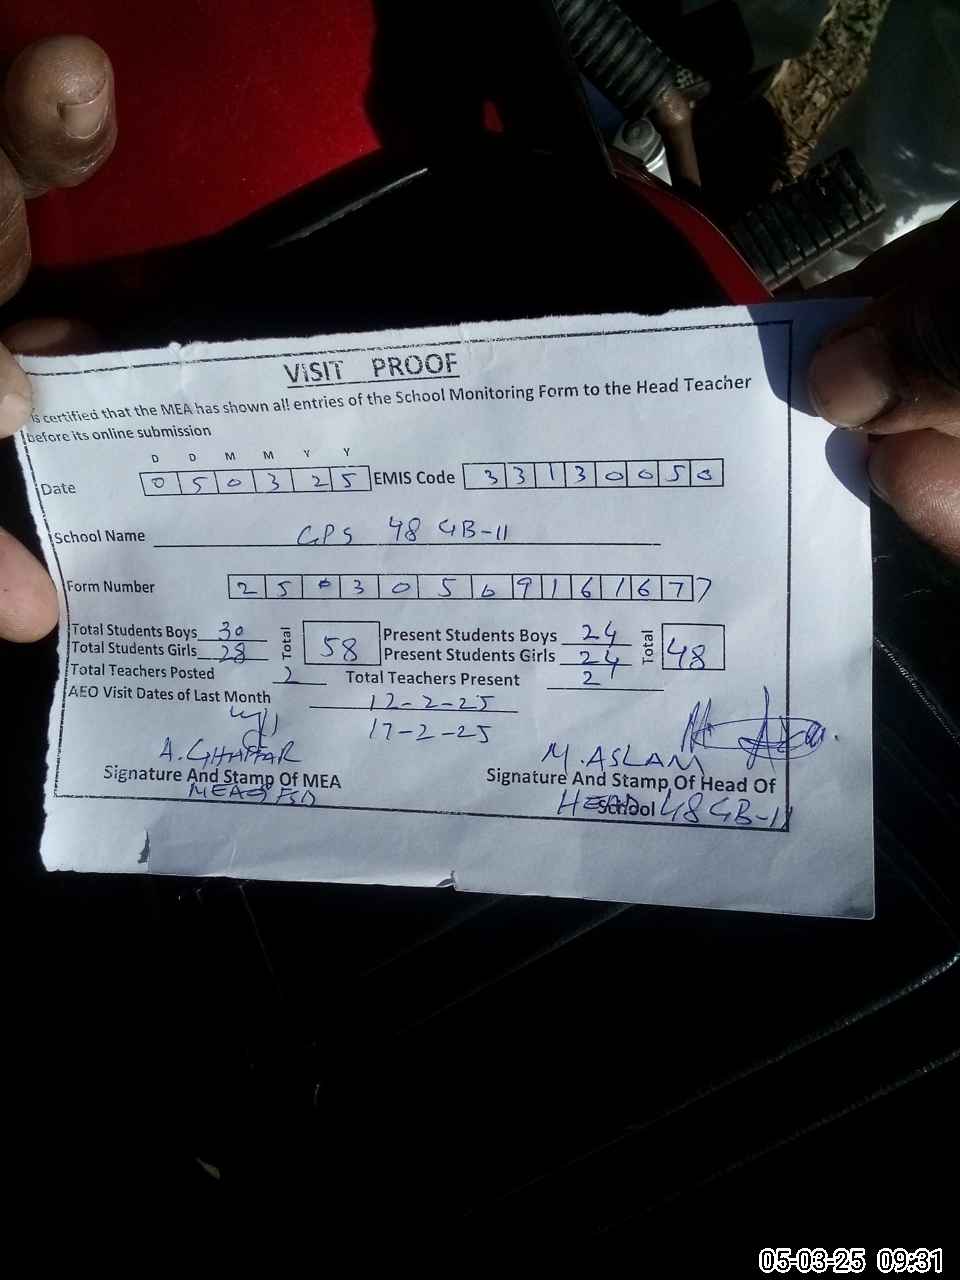 VISIT PROOF
is certified that the MEA has shown all entries of the School Monitoring Form to the Head Teacher
before its online submission
D D M M Y Y
Date 050325 EMIS Code 33130050
School Name GPS 48 GB-II
Form Number 25030569161677
Total Students Boys 30 Total 58 Present Students Boys 24 Total 48
Total Students Girls 28 Present Students Girls 24
Total Teachers Posted 2 Total Teachers Present 2
AEO Visit Dates of Last Month 12-2-25
17-2-25
A. GHAFFAR M. ASLAM
Signature And Stamp Of MEA Signature And Stamp Of Head Of
School
HEAD 48 GB-II
05-03-25 09:31